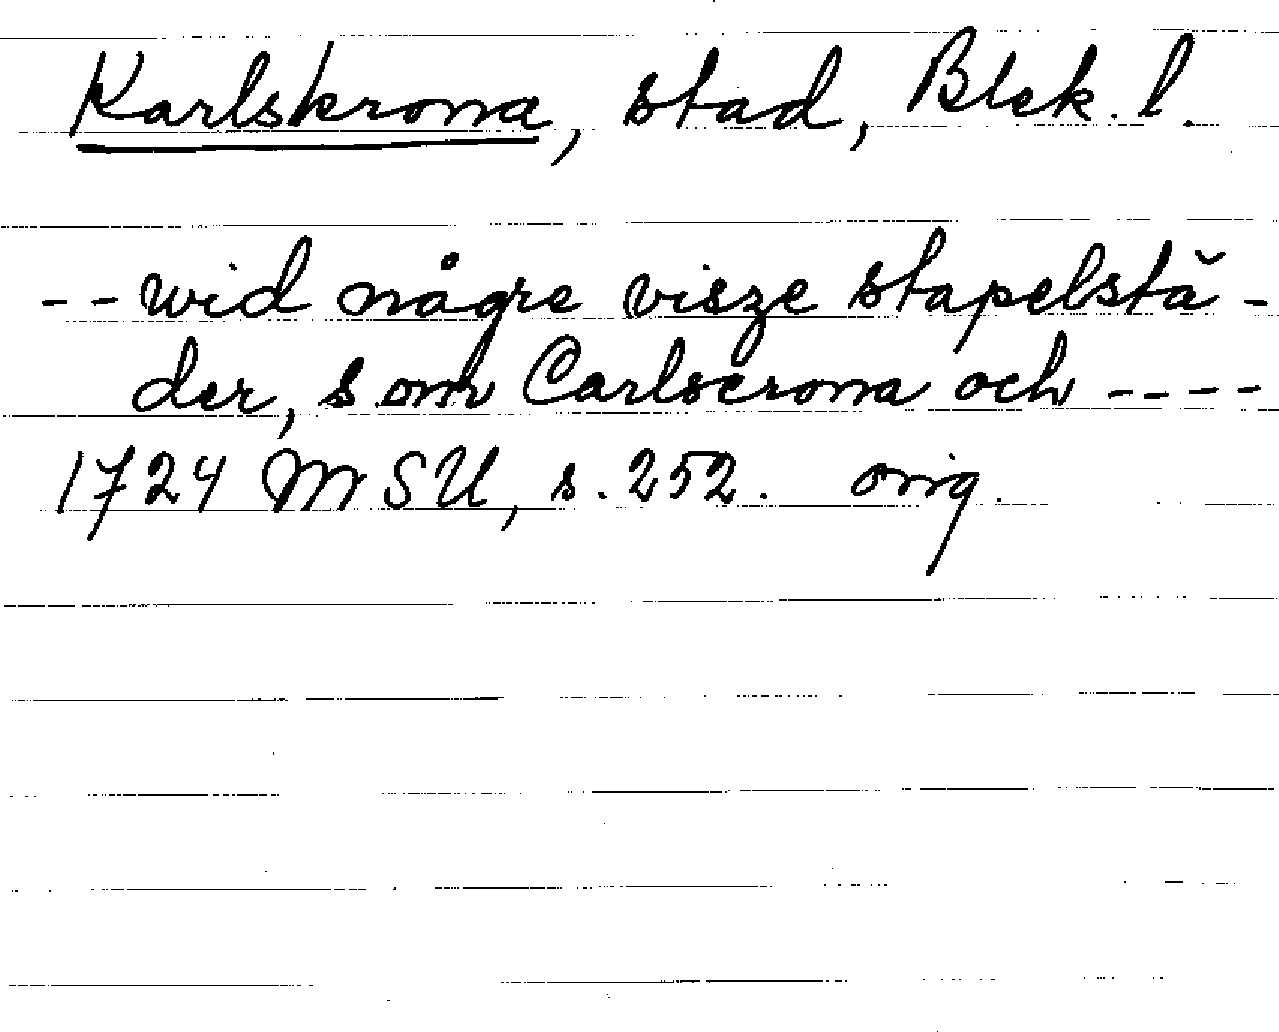 Karlskrona, stad, Blek. l.
-- wid någre visze stapelstä-
der, som Carlscrona och ----
1724 MSU, s. 252. orig.